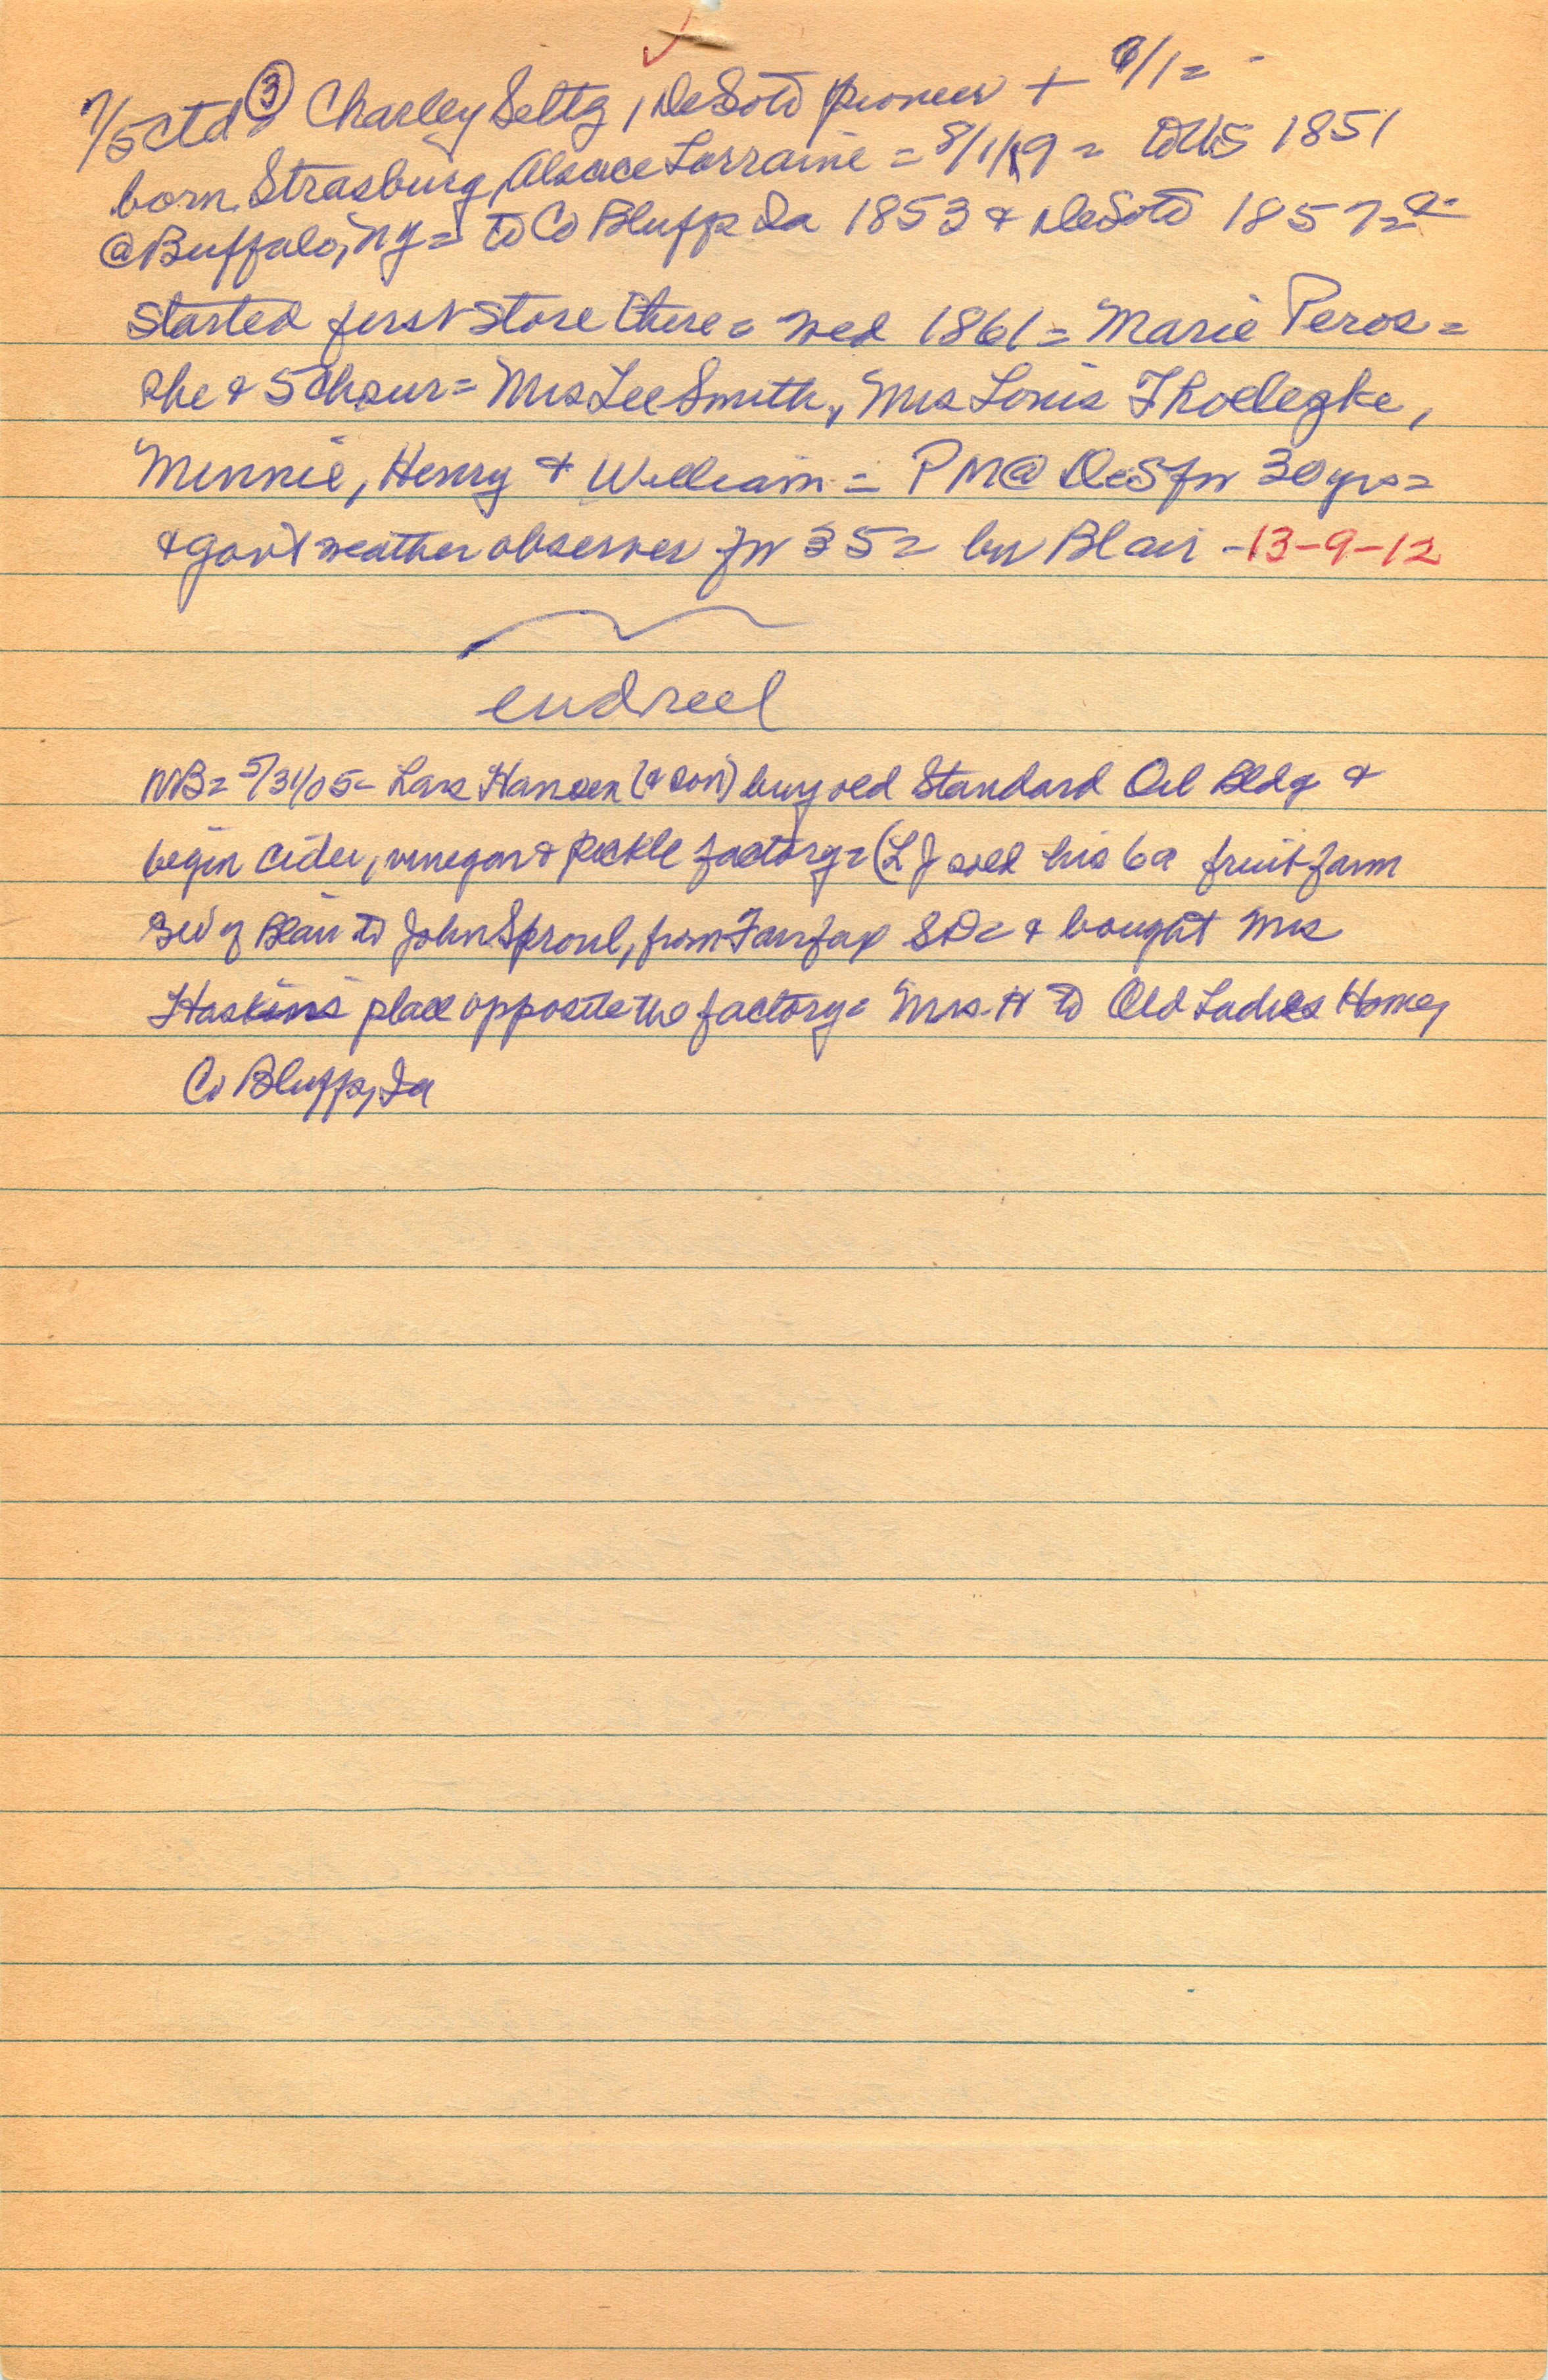 7/5 ctd ③ Charley Seltz, DeSoto pioneer + 7/1=
born Strasburg, Alsace Lorraine = 8/1/19 = to US 1851
@ Buffalo, NY = to Co Bluffs Ia 1853 & DeSoto 1857=&
started first store there = wed 1861 = Marie Peros =
she & 5 ch sur = Mrs Lee Smith, Mrs Louis Thoelegke,
Minnie, Henry & William = PM @ DeS for 30 yrs =
& gov't weather observer for 35 = bur Blair -13-9-12
end reel
NB = 5/31/05 = Lars Hansen (& son) buy old Standard Oil Bldg &
begin cider, vinegar & pickle factory = (LJ sold his 6a fruit farm
SW of Blair to John Sproul, from Fairfax SD = & bought Mrs
Haskins place opposite the factory = Mrs H to Old Ladies Home,
Co Bluffs, Ia